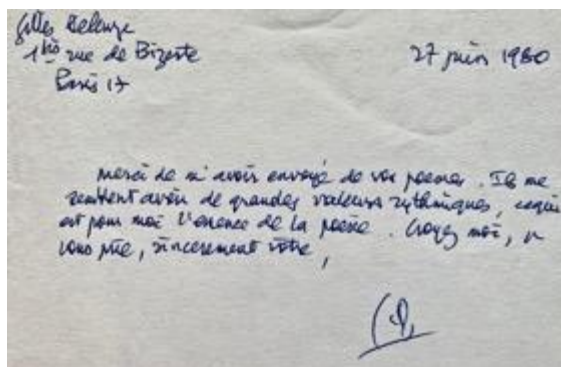 Gilles Deleuze
1 bis rue de Bizerte
Paris 17
27 juin 1980
merci de m'avoir envoyé de vos poèmes. Ils me
semblent avoir de grandes valeurs rythmiques, ce qui
est pour moi l'essence de la poésie. Croyez moi, je
vous prie, sincèrement vôtre,